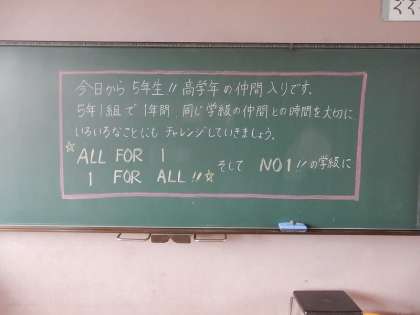 今日から 5年生!! 高学年の仲間入りです。
5年1組で1年間 同じ学級の仲間との時間を大切に
いろいろなことにも チャレンジしていきましょう。
☆ALL FOR 1 そして NO1!!の学級に
1 FOR ALL!!☆